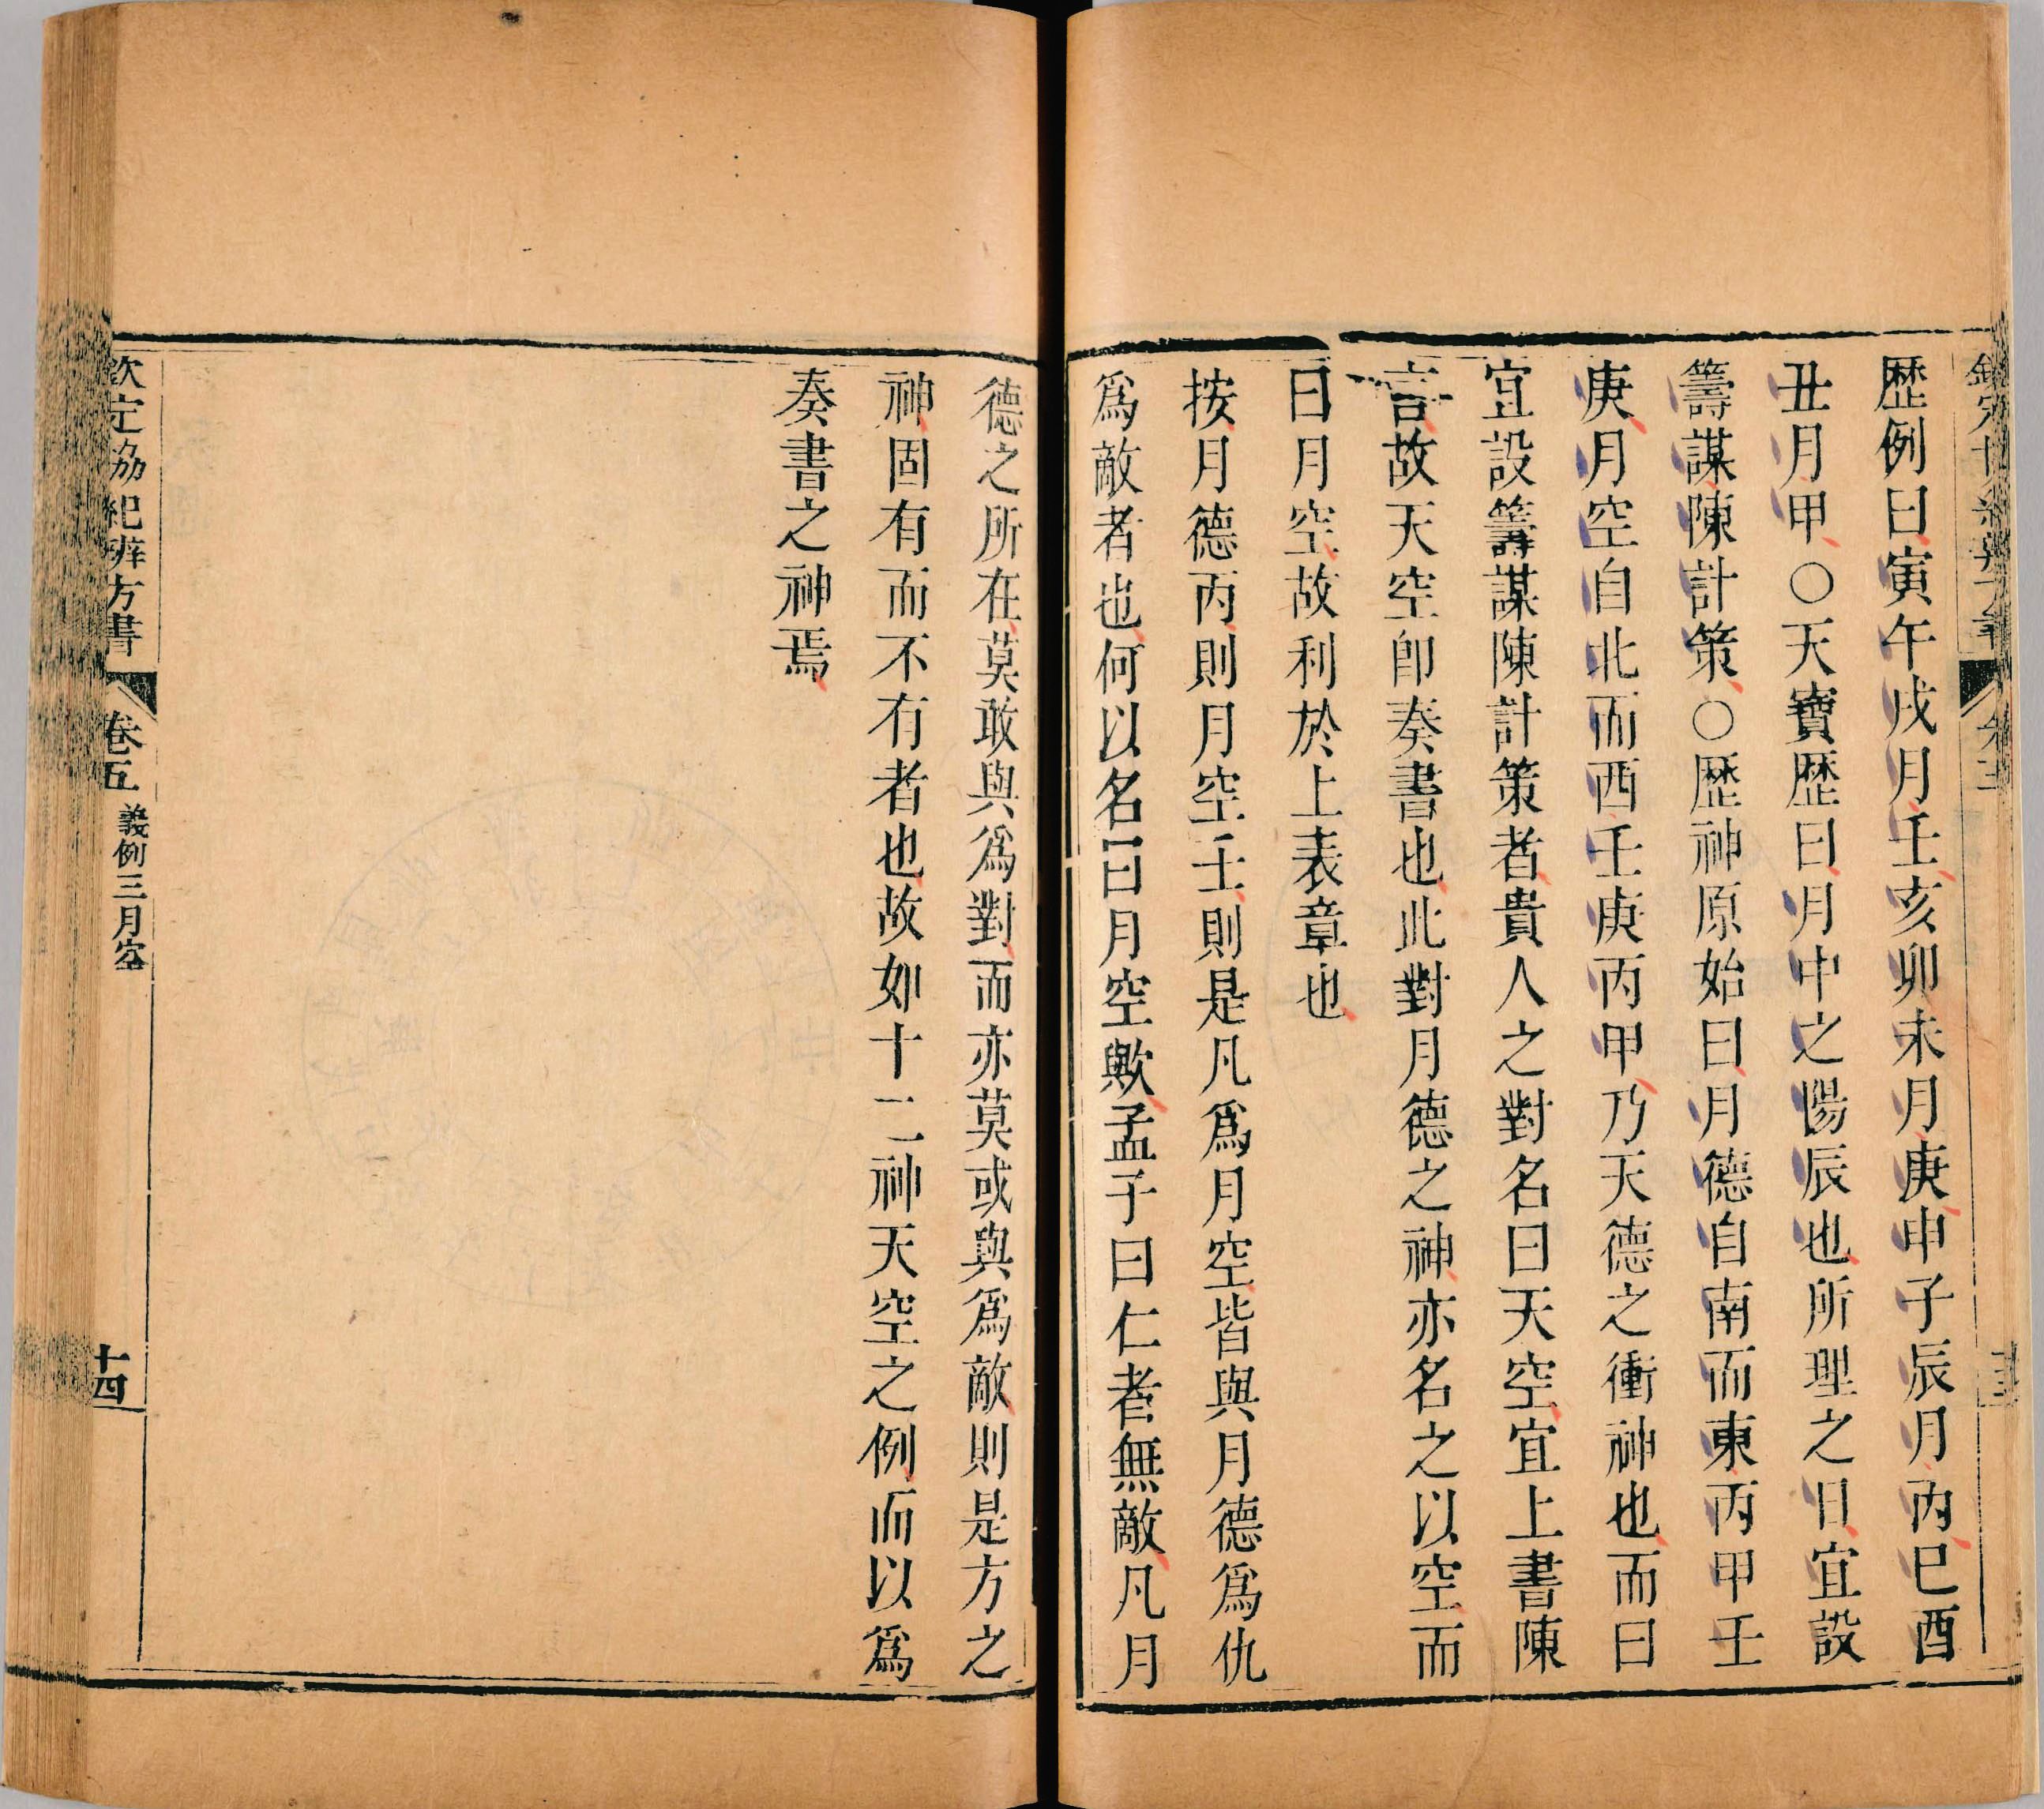 歷例曰寅午戌月壬亥卯未月庚申子辰月丙巳酉
丑月甲〇天寶歷曰月中之陽辰也所理之日宜設
籌謀陳計策〇歷神原始曰月德自南而東丙甲壬
庚月空自北而西壬庚丙甲乃天德之衝神也而曰
宜設籌謀陳計策者貴人之對名曰天空宜上書陳
言故天空卽奏書也此對月德之神亦名之以空而
曰月空故利於上表章也
按月德丙則月空壬則是凡爲月空皆與月德爲仇
爲敵者也何以名曰月空歟孟子曰仁者無敵凡月
德之所在莫敢與爲對而亦莫或與爲敵則是方之
神固有而不有者也故如十二神天空之例而以爲
奏書之神焉
欽定協紀辨方書 卷五 義例三月空 十四